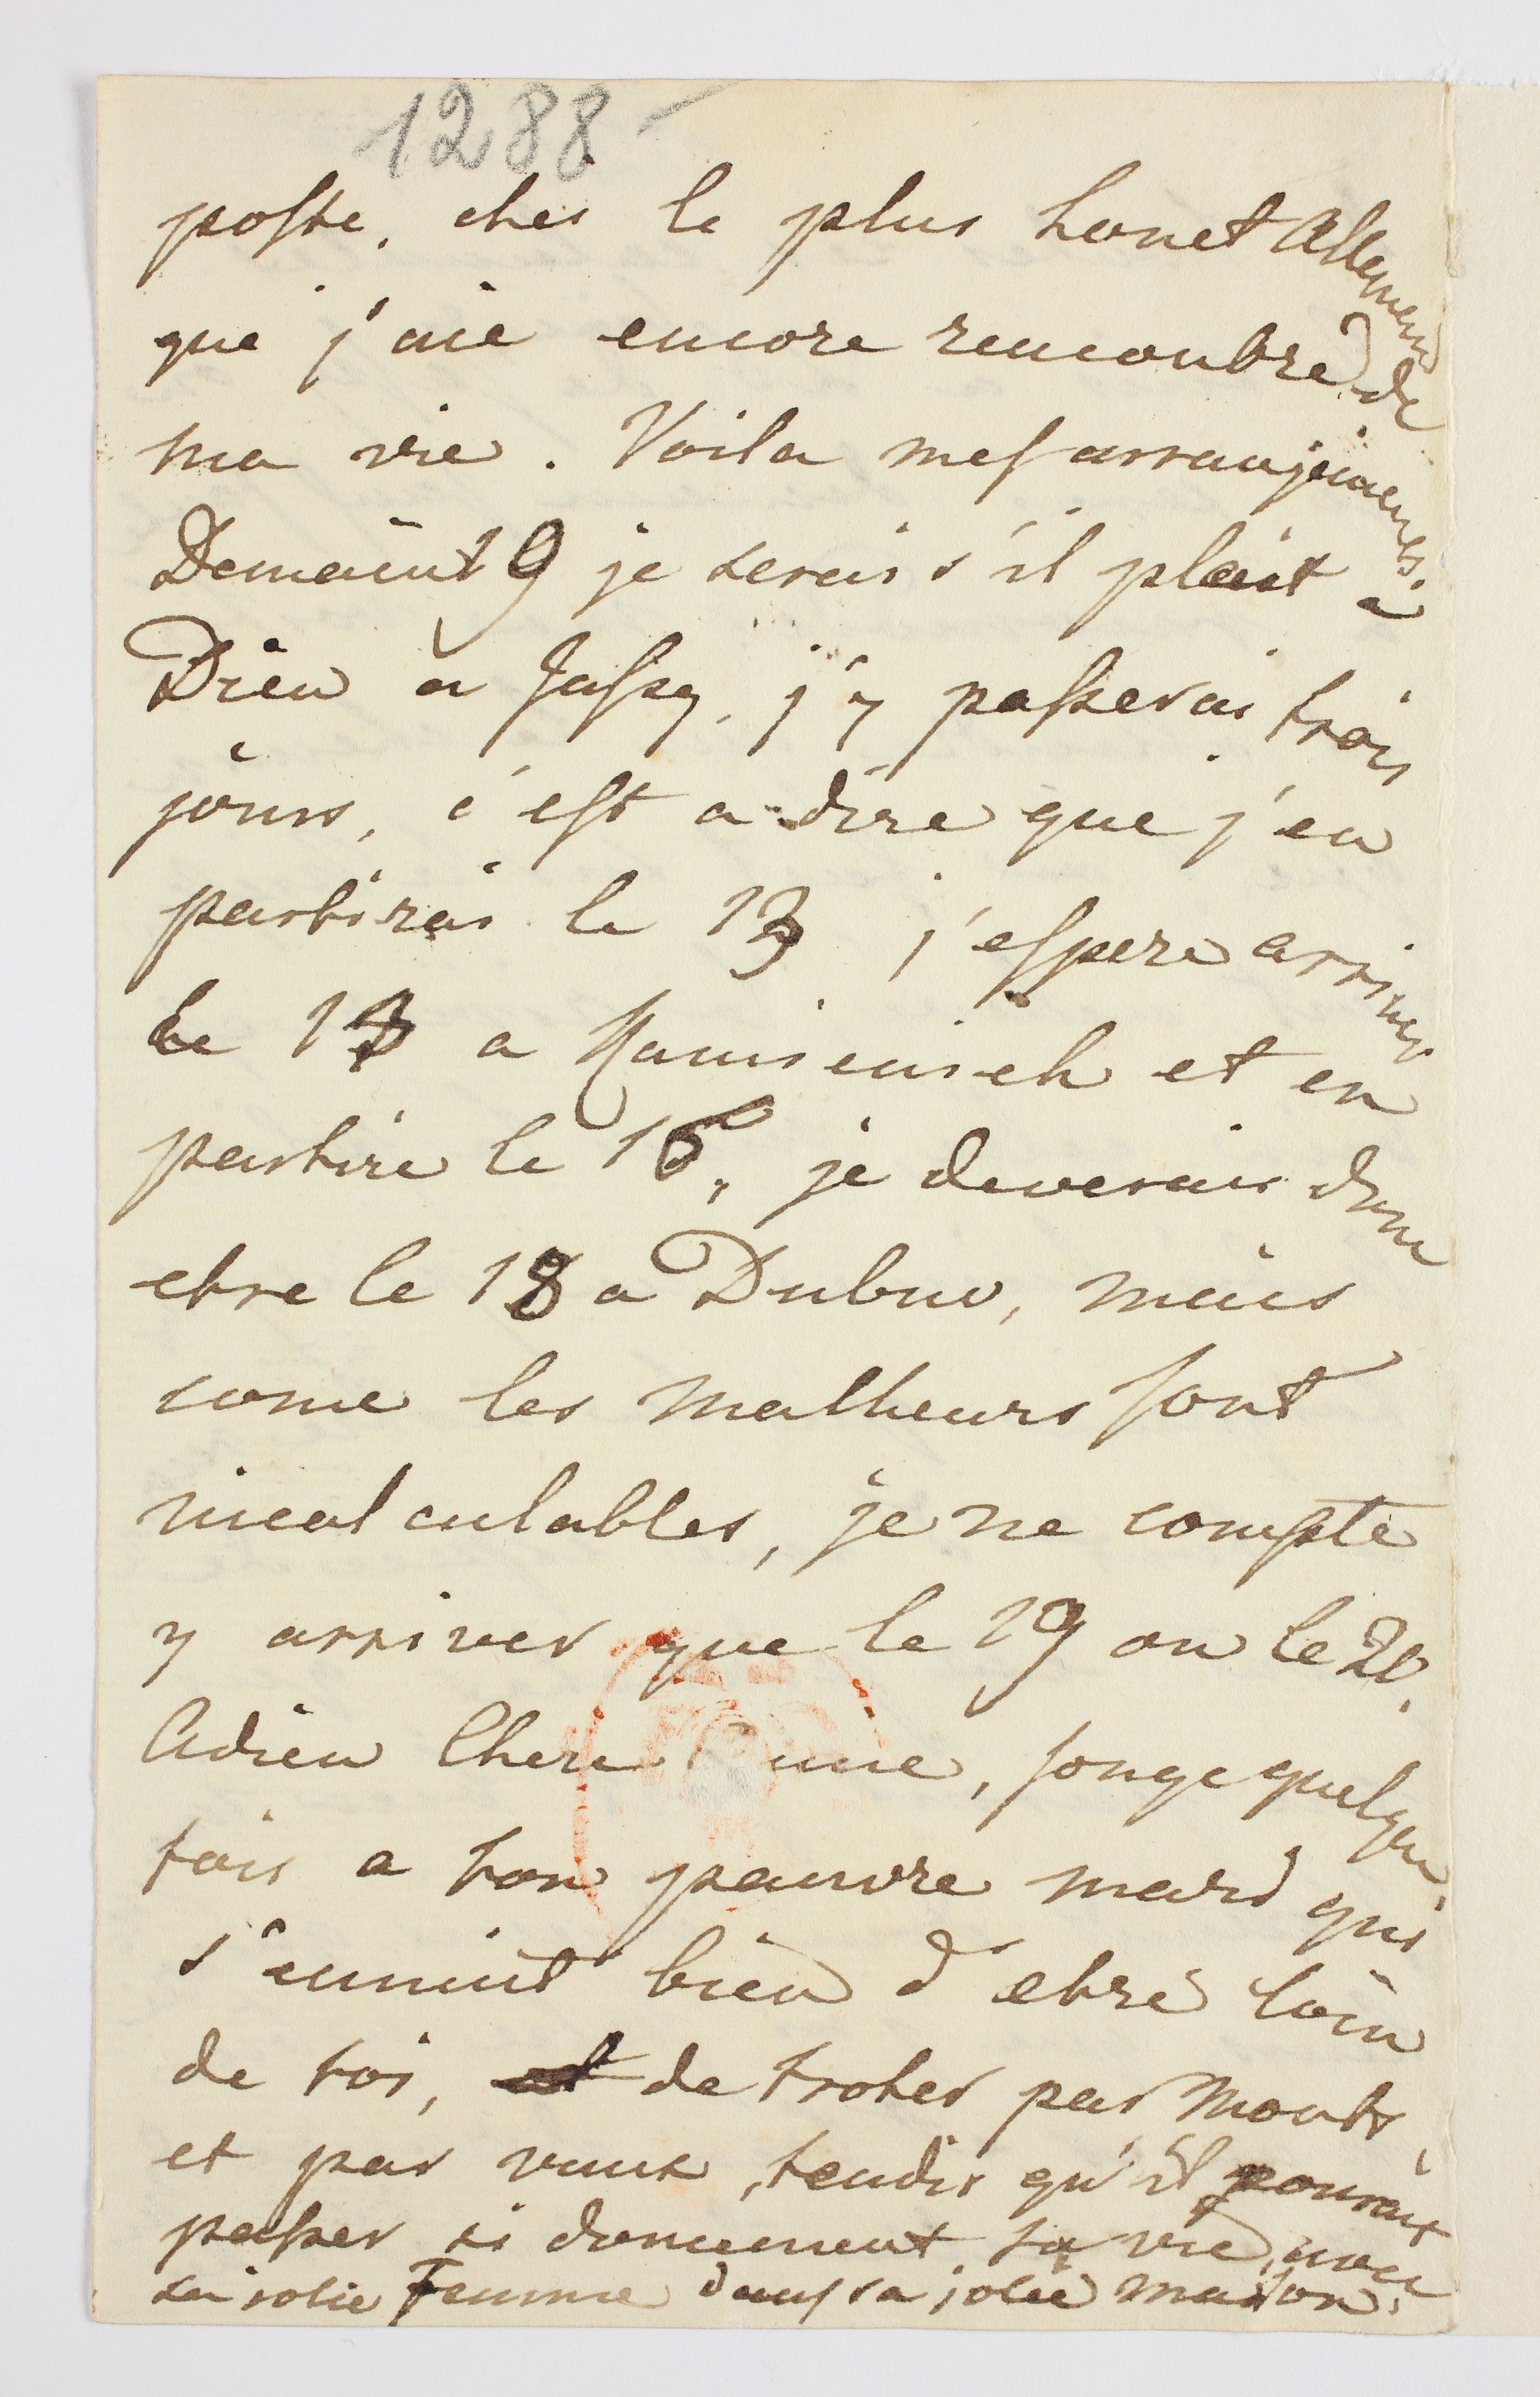 1288
poste, ches le plus honet Allemend
que j'aie encore rencontré de
ma vie. Voila mes arranjemens.
Demaint 9 je serais s'il plait a
Dieu a Jassy, j'y passerai trois
jours, c'est a dire que j'en
partirai le 13 j'espere arriver
le 13 a Kaminieich et en
partire le 15, je deverais donc
etre le 18 a Dubno, mais
come les malheurs sont
incalculables, je ne compte
y arriver que le 19 ou le 20.
Adieu Chere, songe quelque
fois a ton pauvre mari qui
s'ennuit bien d'etre loin
de toi, de troter par monts
et par vaux, tendis qu'il pourait
passer si doucement sa vie, avec
sa jolie Femme dans sa jolie maison.